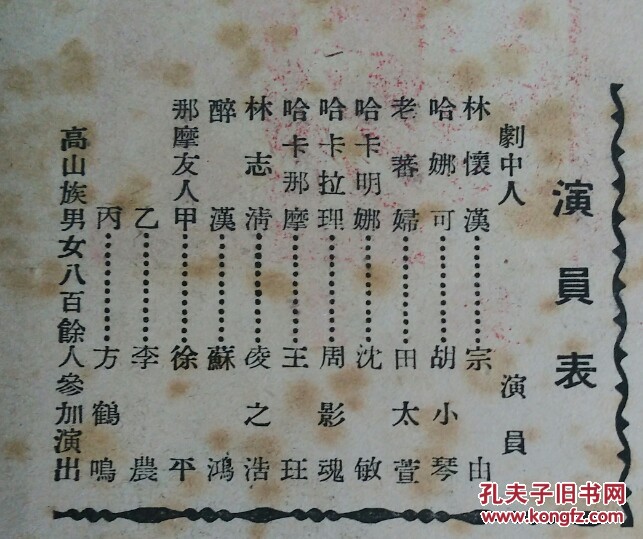 演員表
劇中人 演員
林懷漢………宗由
哈娜可………胡小琴
老蕃婦………田太萱
哈卡明娜………沈敏
哈卡拉理………周影魂
哈卡那摩………王玨
林志清………凌之浩
醉漢………蘇鴻
那摩友人甲………徐平
乙………李農
丙………方鶴鳴
高山族男女八百餘人參加演出
孔夫子旧书网
www.kongfz.com